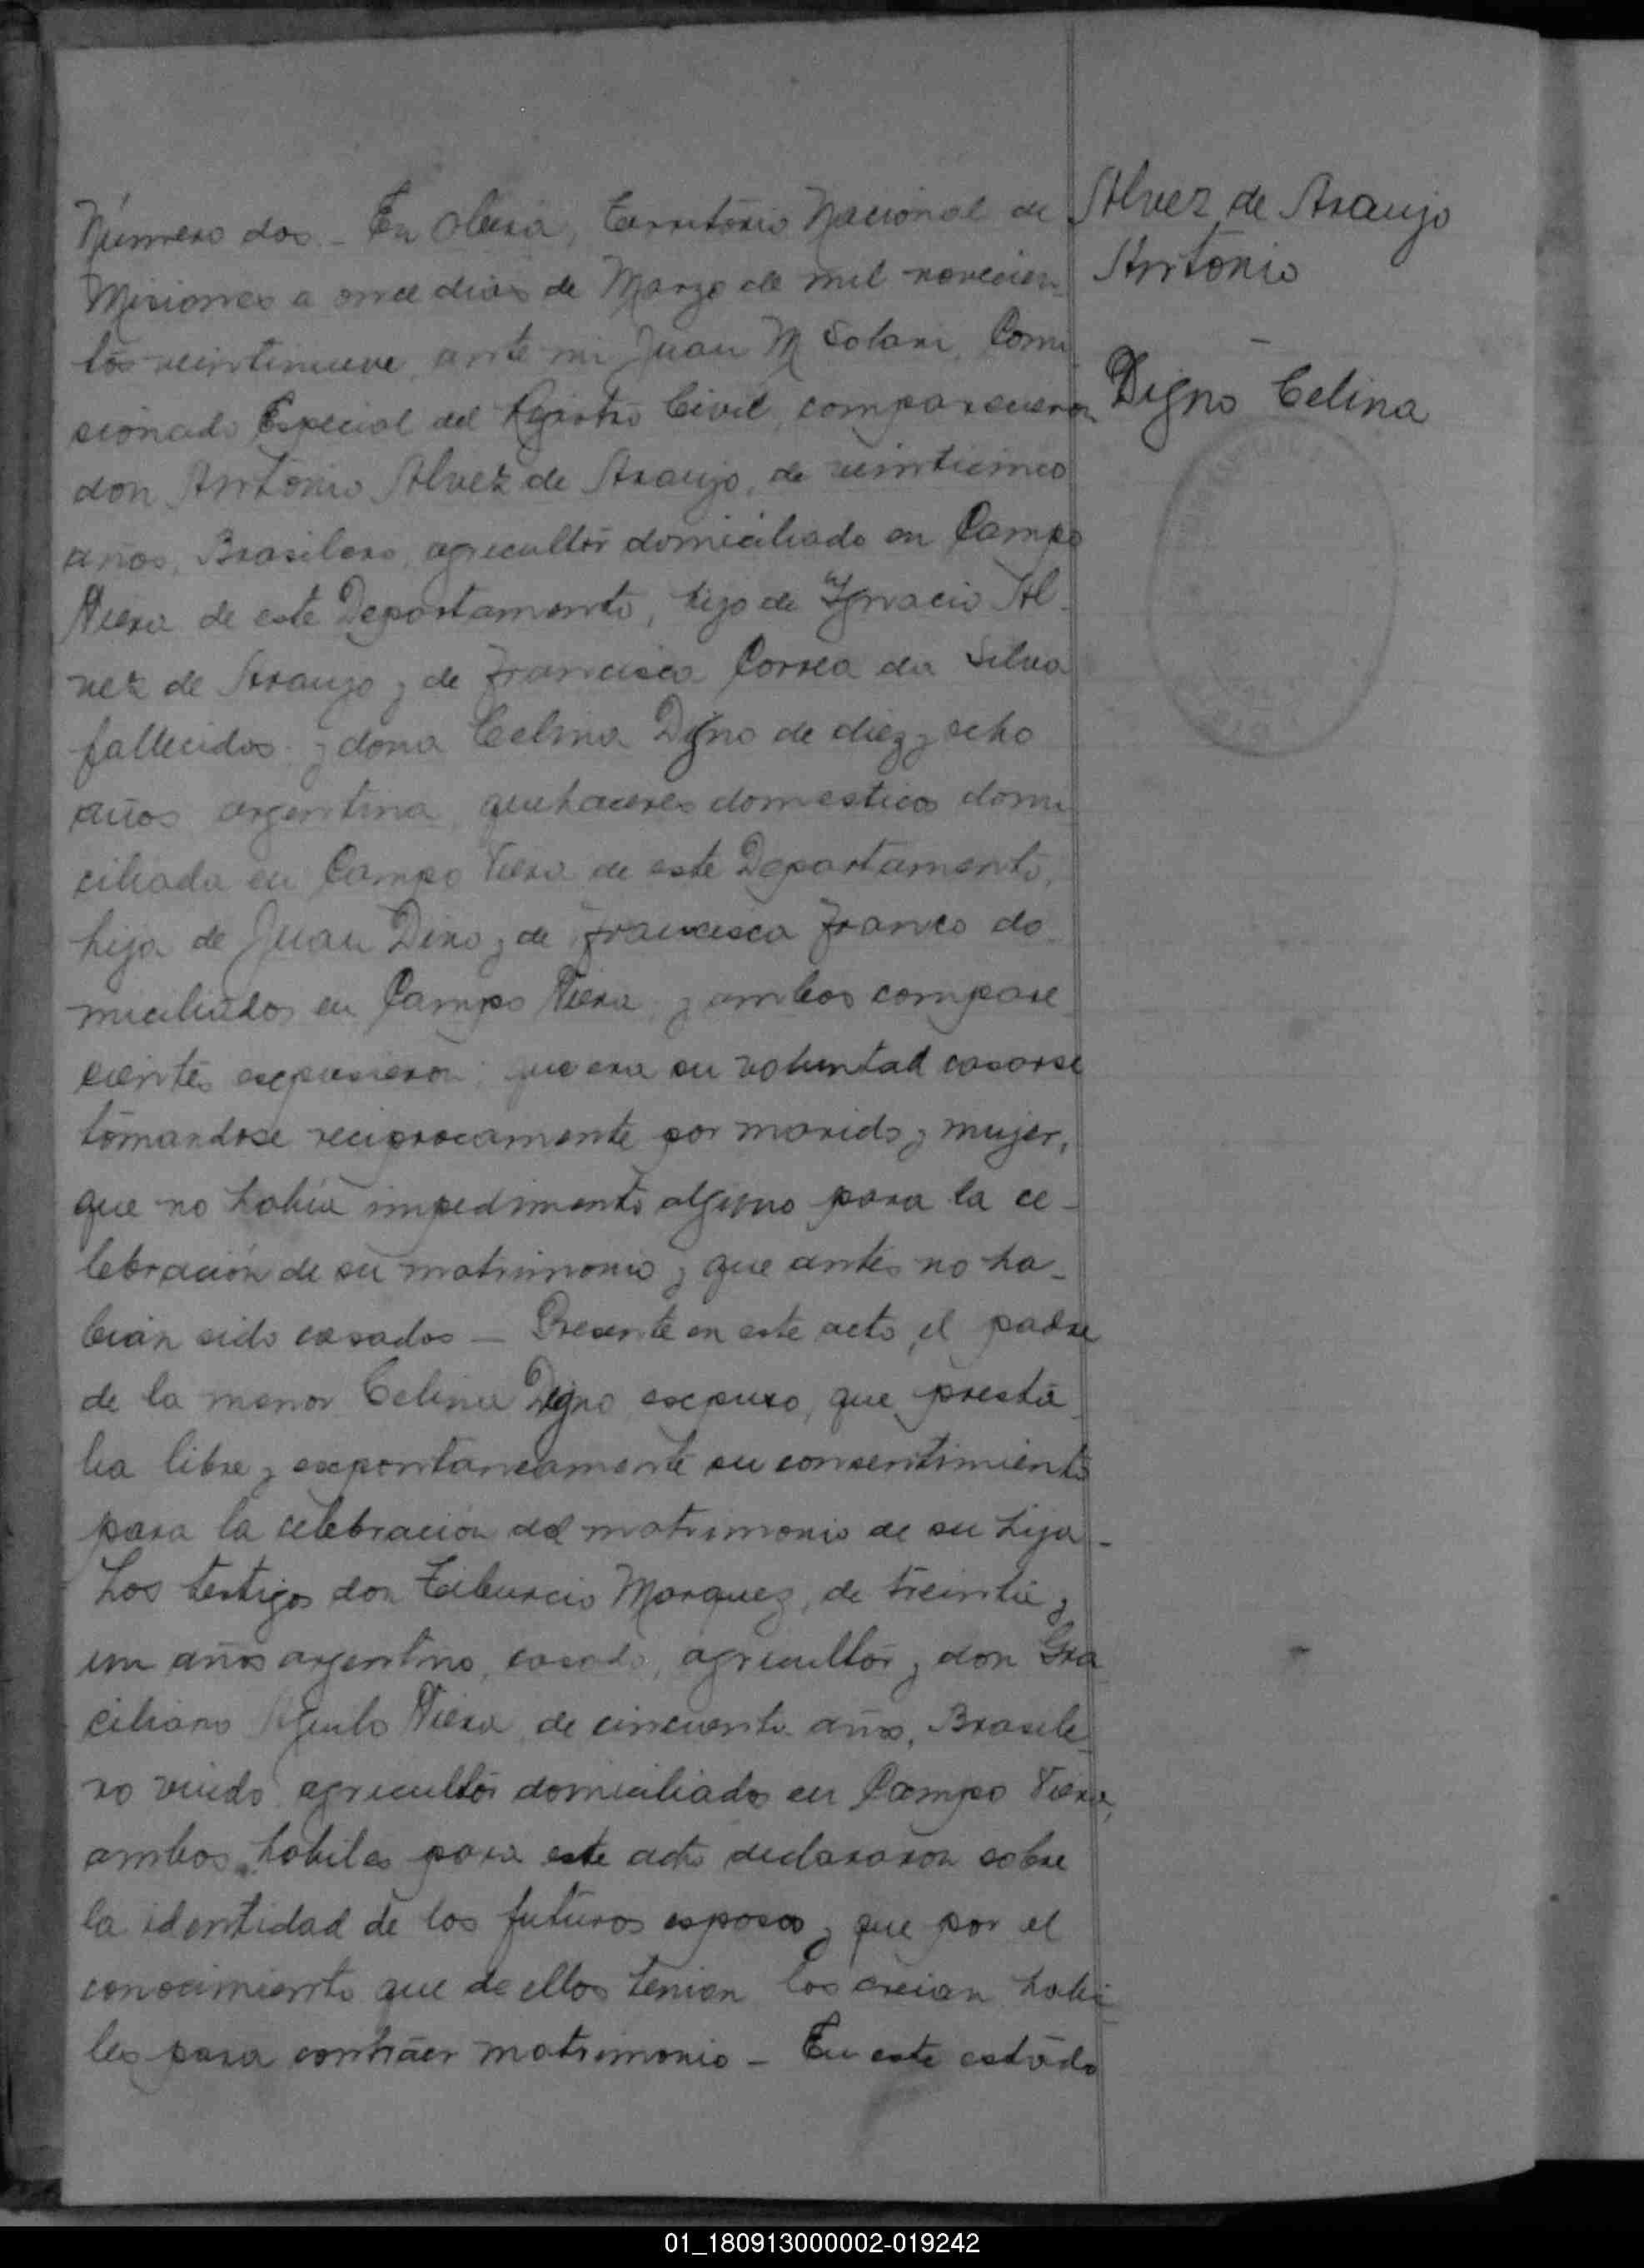 Alvez de Araujo
Antonio
Digno Celina
Número dos – En Oberá, Territorio Nacional de
Misiones a once dias de Marzo de mil novecien-
tos veintinueve, ante mi Juan M Solari, Comi
sionado Especial del Registro Civil, comparecieron
don Antonio Alvez de Araujo, de veinticinco
años, Brasilero, agricultor domiciliado en Campo
Viera de este Departamento, hijo de Ygnacio Al-
vez de Araujo y de Francisca Correa da Silva
fallecidos y dona Celina Digno de diez y ocho
años argentina, quehaceres domesticos domi
ciliada en Campo Viera de este Departamento,
hija de Juan y de Francisca Franco do-
miciliados en Campo Viera, y ambos compare
cientes expusieron: que era su voluntad casarse
tomandose reciprocamente por marido y mujer,
que no habia impedimento alguno para la ce-
lebración de su matrimonio y que antes no ha-
bian sido casados – Presente en este acto, el padre
de la menor Celina Digno expuso, que presta
ba libre y expontaneamente su consentimiento
para la celebración del matrimonio de su hija –
Los testigos don Tiburcio Marquez, de treinta y
un años argentino, casado, agricultor y don Gra
ciliano Viera, de cincuenta años, Brasile-
ro viudo agricultor domiciliados en Campo Viera,
ambos habiles para este acto declararon sobre
la identidad de los futuros esposos y que por el
conocimiento que de ellos tenian los creian habi
les para contraer matrimonio – En este estado
01_180913000002-019242